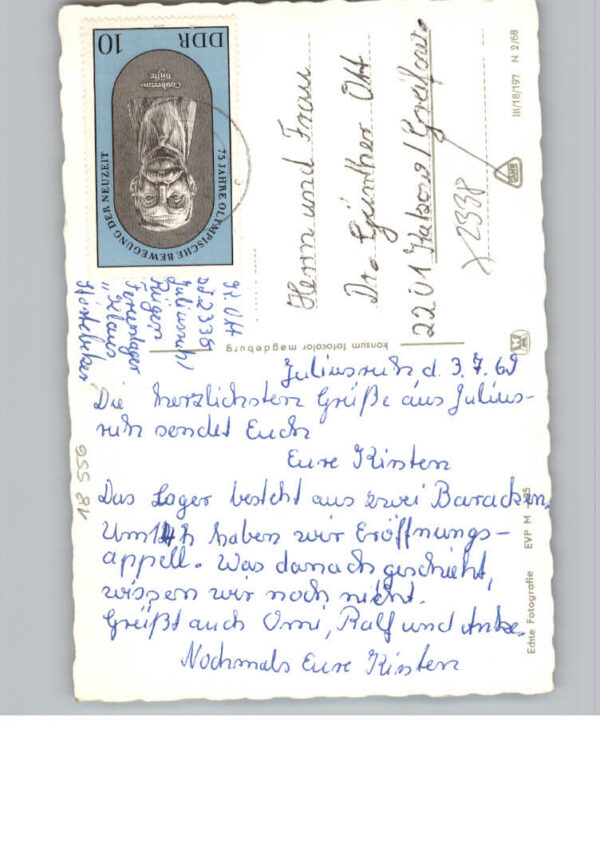 DDR
10
Coubertin-
Büste
75 JAHRE OLYMPISCHE BEWEGUNG DER NEUZEIT
III/18/197 N 2/68
Herrn und Frau
Dr. Günther Ott
2201
2338
K. Ott
2338
Juliusruh/
Rügen
Ferienlager
konsum fotocolor magdeburg
Juliusruh d. 3.7.69
Die herzlichsten Grüße aus Julius-
ruh sendet Euch
Eure Kirsten
Das Lager besteht aus zwei Baracken.
Um 14h haben wir Eröffnungs-
appell. Was danach geschieht,
wissen wir noch nicht.
Grüßt auch Omi, Ralf und Anke.
Nochmals Eure Kirsten
Echte Fotografie EVP M -,25
18 556